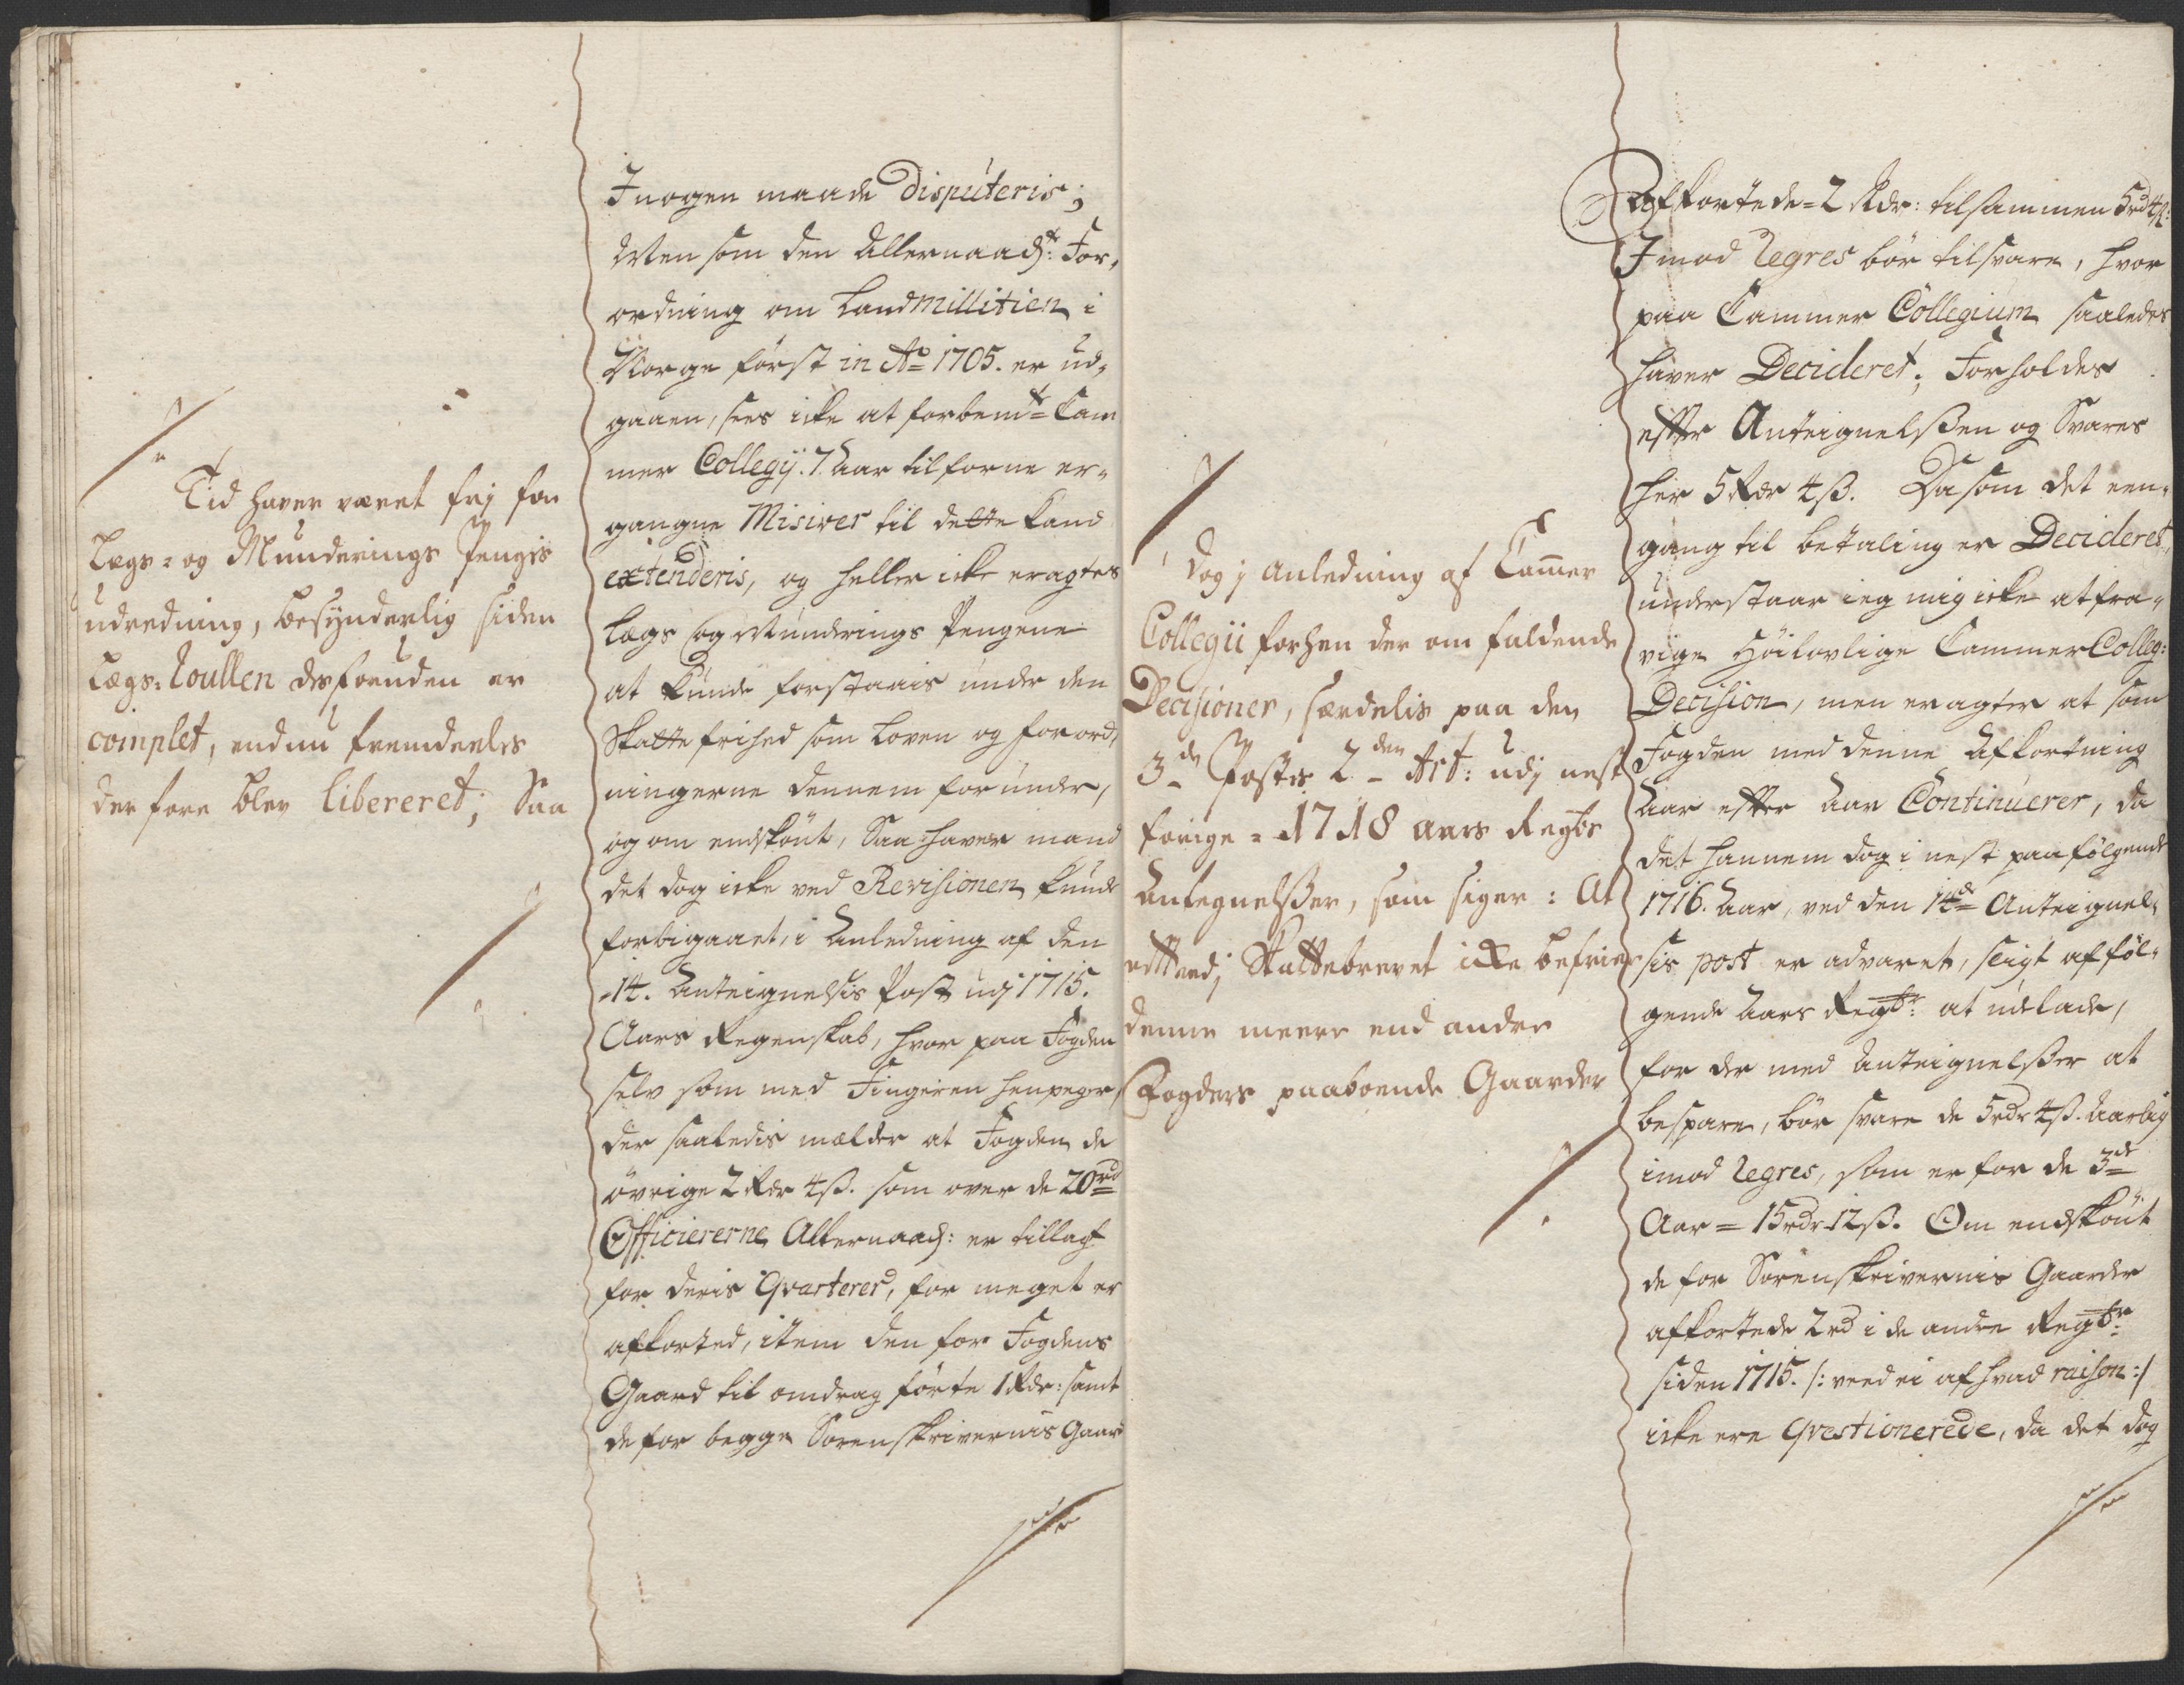 Tid haver været frj for
Lægs- og Munderings Pengis
udredning, besynderlig siden
Lægs-Roullen desforuden er
complet, endnu fremdeelis
der fore blev libereret; Saa
I nogen maade Disputeris;
Men som den Allernaadst: For-
ordning om Land millitien i
Norge først in Ao 1705. er ud-
gaaen, sees icke at forbemte Cam
mer Collegij 7 Aar tilforne er-
gangne Misiver til dette kand
extenderis, og heller icke eragtes
Lægs og Munderings Pengene
at kunde forstaais under den
Skatte frihed som Loven og forord-
ningerne dennem forunder,
og om endskønt, Saa haver mand
det dog icke ved Revisionen kunde
forbigaaet, i Anledning af den
14. Anteignelsis Post udj 1715.
Aars Regenskab, hvor paa Fogden
selv som med Fingeren henpeger,
der saaledis melder at Fogden de
øvrige 2 Rdr 4 ß. som over de 20 rd
Officiererne Allernaad: er tillagt
for deris Qvarterer, for meget er
afkorted, item den for Fogdens
Gaard til omdrag førte 1 Rdr: samt
de for begge Sorenskrivernis Gaard
Dog j anledning af Cammer
Collegii forhen der om faldende
Decisioner, særdelis paa den
3de Postis 2den Art: udj nest
forige 1718 aars Regbs
Antegnelßer, som siger: At
Skattebrevet icke befrier
denne meere end andre
Fogders paaboende Gaarder
Afkortede 2 Rdr: tilsammen 5 rd 4 ß:
Imod Regres bør tilsvare, hvor
paa Cammer Collegium saaledes
haver Decideret; Forholdes
efter Anteignelßen og Svares
her 5 Rdr 4 ß. Da som det een-
gang til betaling er Decideret,
understaar ieg mig icke at fra-
vige Høilovlige Cammer Colleg:
Decision, men eragter at som
Fogden med denne Afkortning
Aar efter Aar Continuerer, da
det hannem dog i nest paafølgende
1716. Aar, ved den 14de Anteignel-
sis post er advaret, sligt af føl-
gende Aars Regbr: at udelade,
for der med Anteignelßer at
bespare, bør svare de 5 rdr 4 ß. Aarlig
imod Regres, som er for de 3de
Aar = 15 rdr 12 ß. Om endskønt
de for Sorenskrivernis Gaarder
afkortede 2 rd i de andre Regbr
siden 1715. /: veed ei af hvad raison :/
icke ere qvestionerede, da det dog